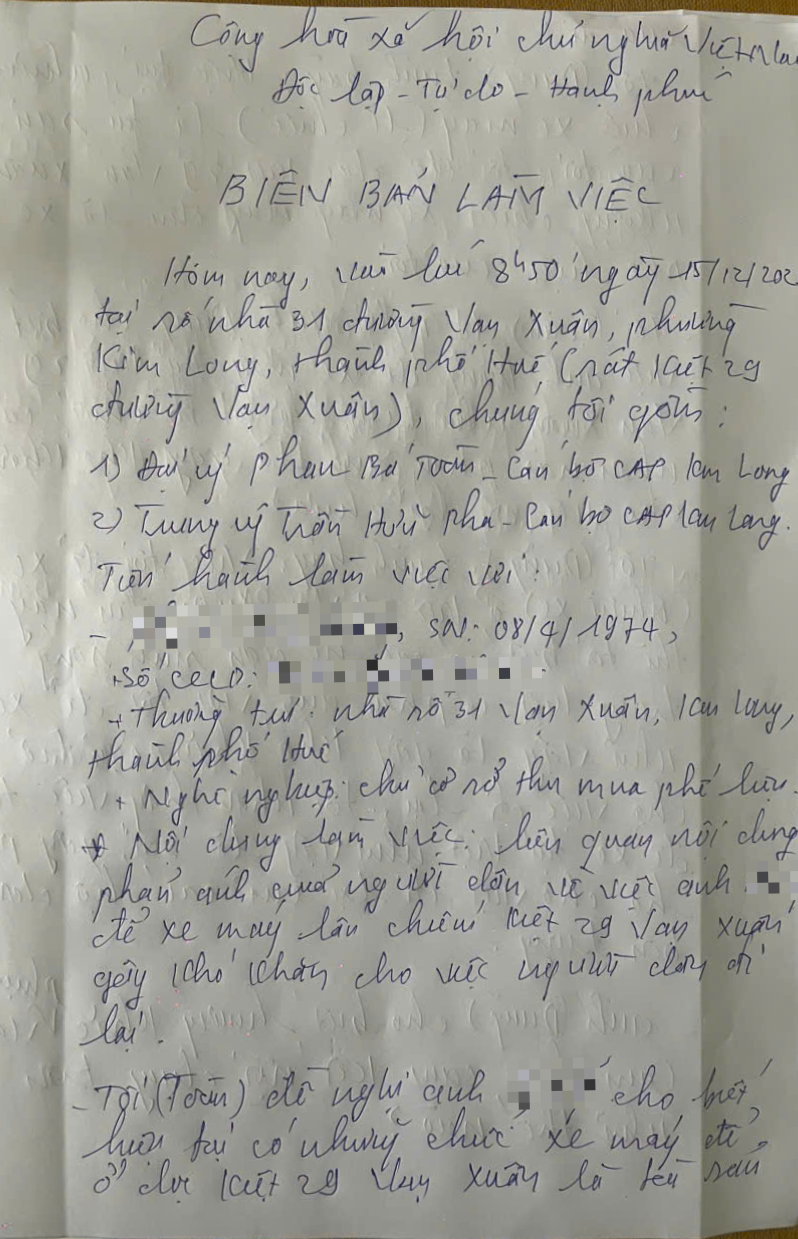 Cộng hoà xã hội chủ nghĩa Việt Na
Độc lập - Tự do - Hạnh phúc
BIÊN BẢN LÀM VIỆC
Hôm nay, vào lúc 8h50' ngày 15/12/202
tại số nhà 31 đường Vạn Xuân, phường
Kim Long, thành phố Huế (sát kiệt 29
đường Vạn Xuân), chúng tôi gồm:
1) Đại uý Phan Bá Toàn - Cán bộ CAP Kim Long
2) Trung uý Trần Hữu Pha - Cán bộ CAP Kim Long.
Tiến hành làm việc với:
- , SN: 08/4/1974,
+ Số CCCD:
+ Thường trú: nhà số 31 Vạn Xuân, Kim Long,
thành phố Huế
+ Nghề nghiệp: chủ cơ sở thu mua phế liệu.
* Nội dung làm việc: liên quan nội dung
phản ánh của người dân về việc anh
để xe máy lấn chiếm kiệt 29 Vạn Xuân
gây khó khăn cho việc người dân đi
lại.
- Tôi (Toàn) đề nghị anh cho biết
hiện tại có những chiếc xe máy để
ở dọc kiệt 29 Vạn Xuân là tài sản